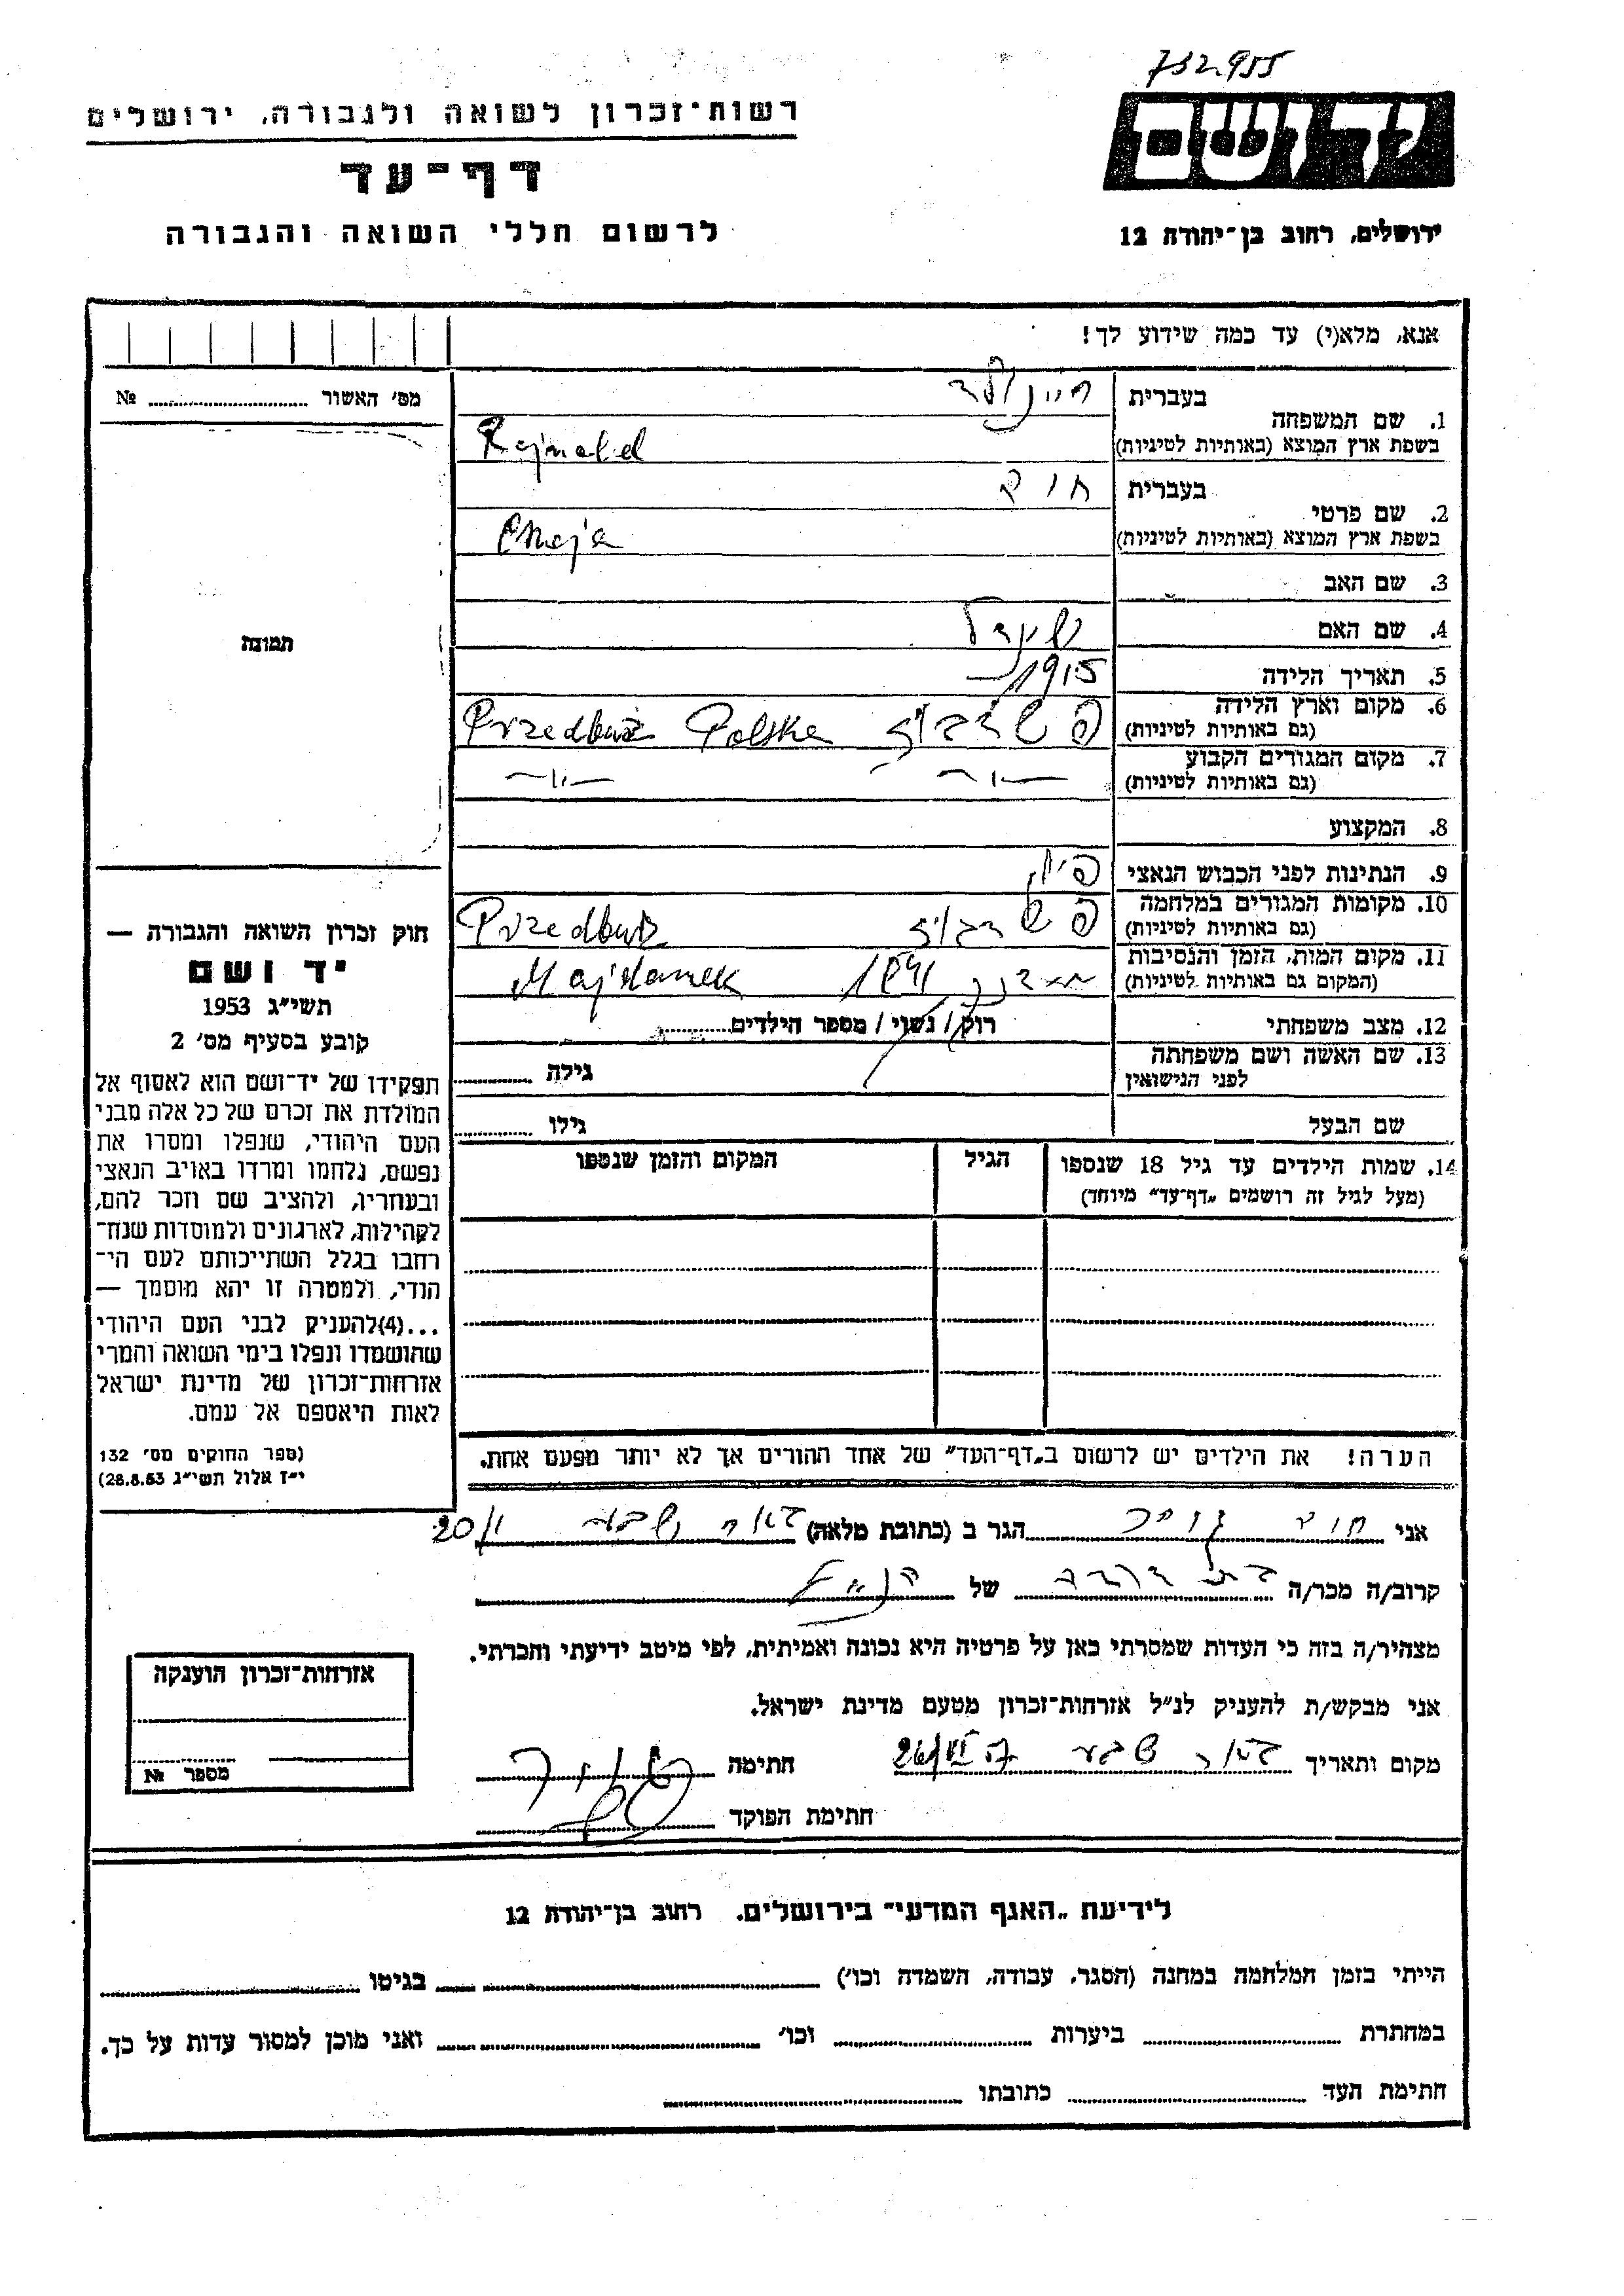 732955
רשות־זכרון לשואה ולגבורה, ירושלים
יד ושם
דף־עד
לרשום חללי השואה והגבורה
ירושלים, רחוב בן־יהודה 12
אנא, מלא(י) עד כמה שידוע לך!
מס׳ האשור № 
1. שם המשפחה
בעברית
בשפת ארץ המוצא (באותיות לטיניות) Rajnold
2. שם פרטי
בעברית חיה
בשפת ארץ המוצא (באותיות לטיניות) Chaja
3. שם האב
4. שם האם
5. תאריך הלידה 1915
6. מקום וארץ הלידה
(גם באותיות לטיניות) Przedburz Polska
7. מקום המגורים הקבוע
(גם באותיות לטיניות) —"— —"—
8. המקצוע
9. הנתינות לפני הכבוש הנאצי
10. מקומות המגורים במלחמה
(גם באותיות לטיניות) Przedburz
11. מקום המות, הזמן והנסיבות
(המקום גם באותיות לטיניות) מידנק 1941 Majdanek
12. מצב משפחתי רוק / נשוי / מספר הילדים
13. שם האשה ושם משפחתה
לפני הנישואין גילה
שם הבעל גילו
14. שמות הילדים עד גיל 18 שנספו הגיל המקום והזמן שנספו
(מעל לגיל זה רושמים „דף־עד״ מיוחד)
הערה! את הילדים יש לרשום ב„דף־העד״ של אחד ההורים אך לא יותר מפעם אחת.
תמונה
חוק זכרון השואה והגבורה —
יד ושם
תשי״ג 1953
קובע בסעיף מס׳ 2
תפקידו של יד־ושם הוא לאסוף אל
המולדת את זכרם של כל אלה מבני
העם היהודי, שנפלו ומסרו את
נפשם, נלחמו ומרדו באויב הנאצי
ובעוזריו, ולהציב שם וזכר להם,
לקהילות, לארגונים ולמוסדות שנח־
רחבו בגלל השתייכותם לעם הי־
הודי, ולמטרה זו יהא מוסמך —
...(4)להעניק לבני העם היהודי
שהושמדו ונפלו בימי השואה והמרי
אזרחות־זכרון של מדינת ישראל
לאות היאספם אל עמם.
(ספר החוקים מס׳ 132
י״ז אלול תשי״ג 28.8.53)
אני הגר ב (כתובת מלאה) באר שבע
קרוב/ה מכר/ה של
מצהיר/ה בזה כי העדות שמסרתי כאן על פרטיה היא נכונה ואמיתית, לפי מיטב ידיעתי והכרתי.
אני מבקש/ת להעניק לנ״ל אזרחות־זכרון מטעם מדינת ישראל.
מקום ותאריך באר שבע חתימה
חתימת הפוקד
אזרחות־זכרון הוענקה
מספר №
לידיעת „האגף המדעי״ בירושלים. רחוב בן־יהודה 12
הייתי בזמן המלחמה במחנה (הסגר, עבודה, השמדה וכו׳) בגיטו
במחתרת ביערות וכו׳ ואני מוכן למסור עדות על כך.
חתימת העד כתובתו